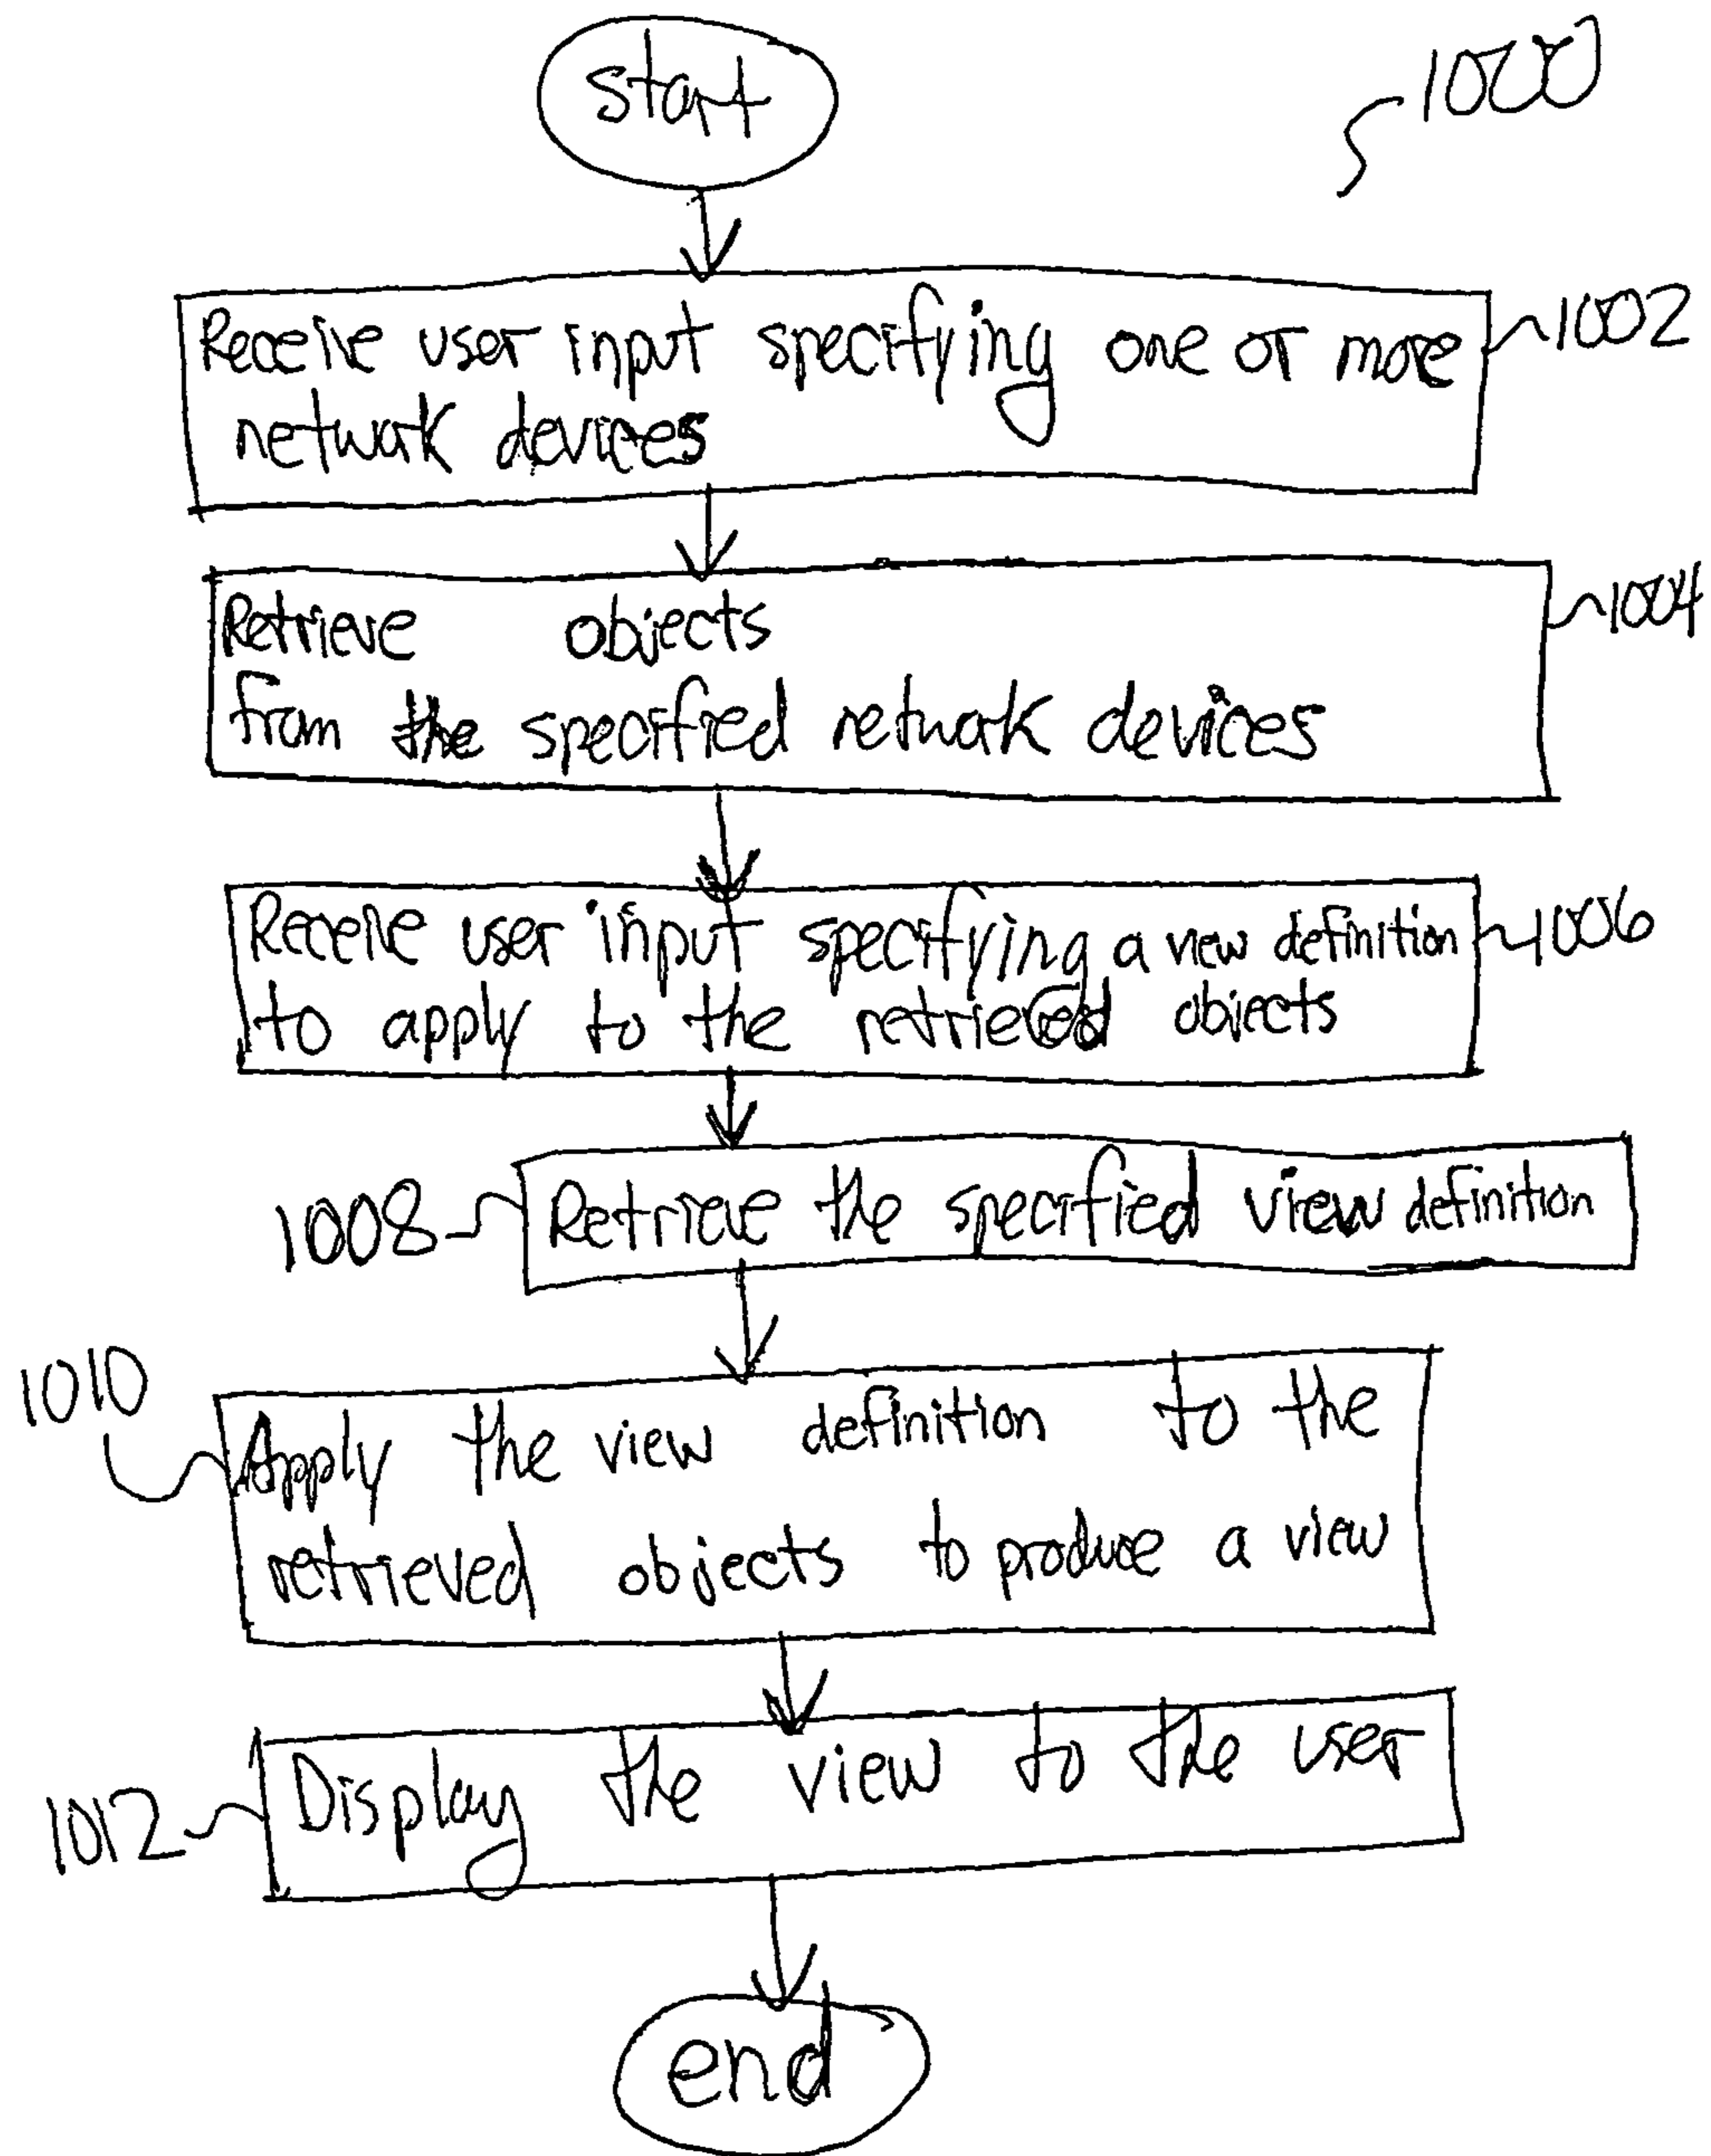 start
1000
Receive user input specifying one or more
1002
network devices
Retrieve objects
1004
from the specified network devices
Receive user input specifying a view definition
1006
to apply to the retrieved objects
1008
Retrieve the specified view definition
1010
Apply the view definition to the
retrieved objects to produce a view
Display the view to the user
1012
end